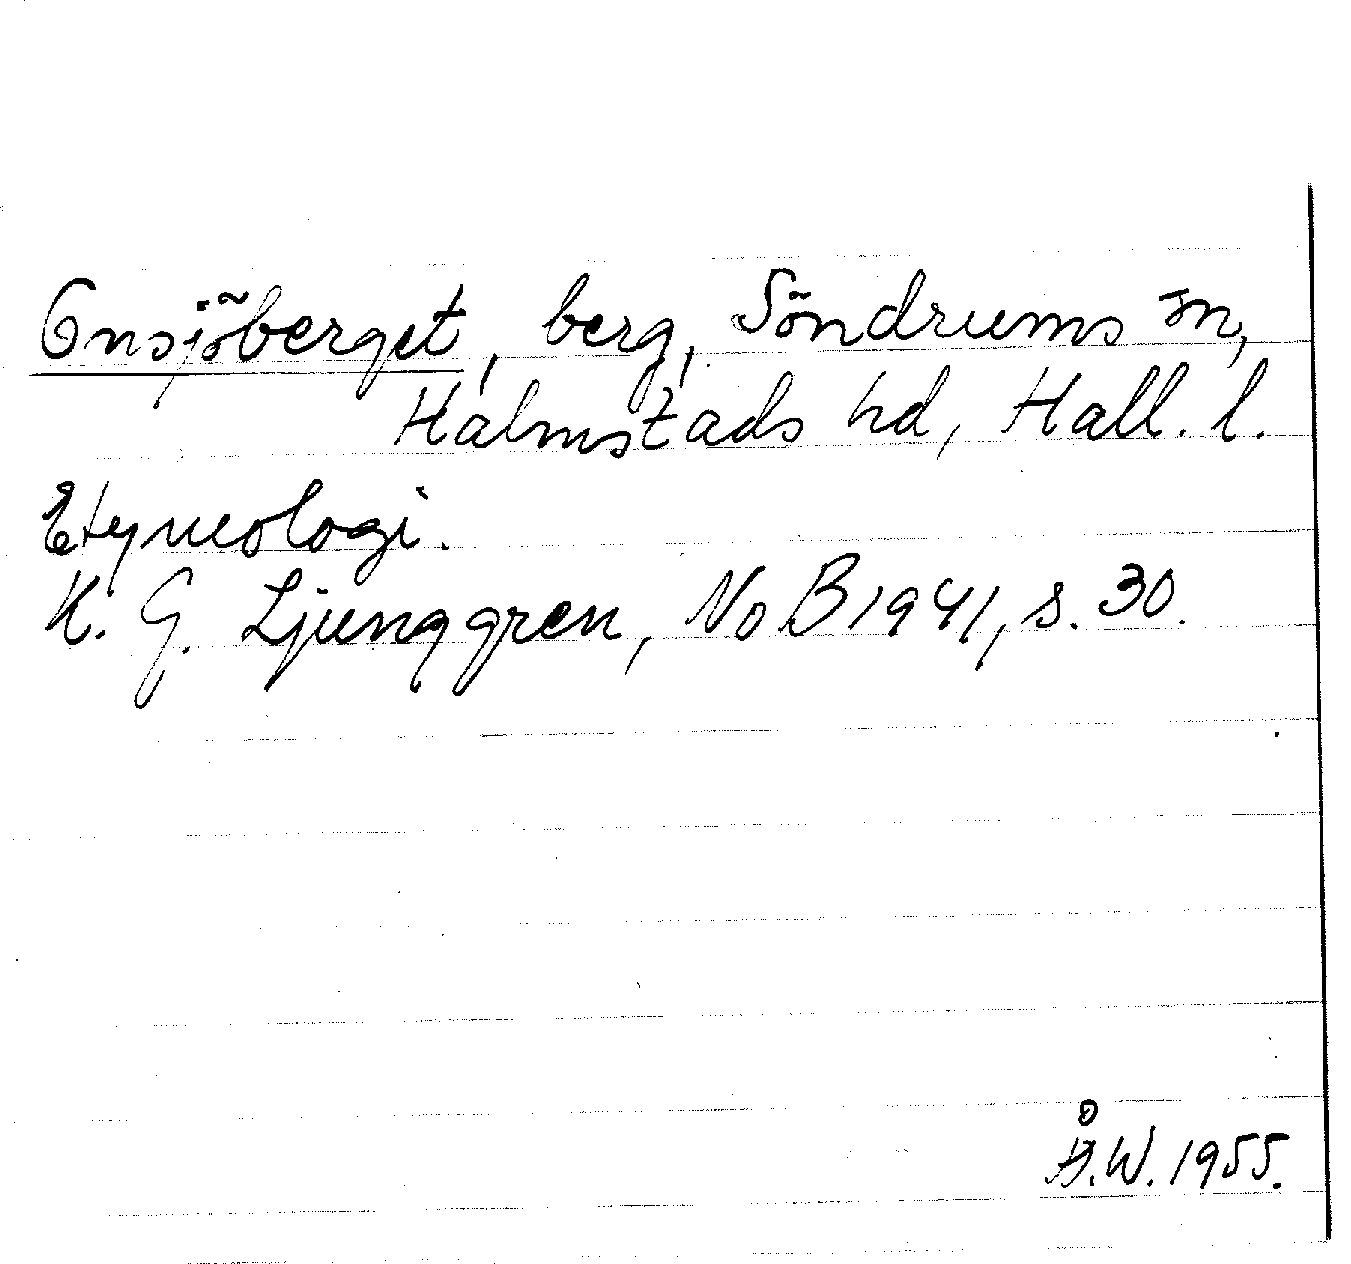 Ensjöberget, berg, Söndrums sn,
Halmstads hd, Hall. l.
Etymologi.
K. G. Ljunggren, NoB 1941, s. 30.
Å.W. 1955.